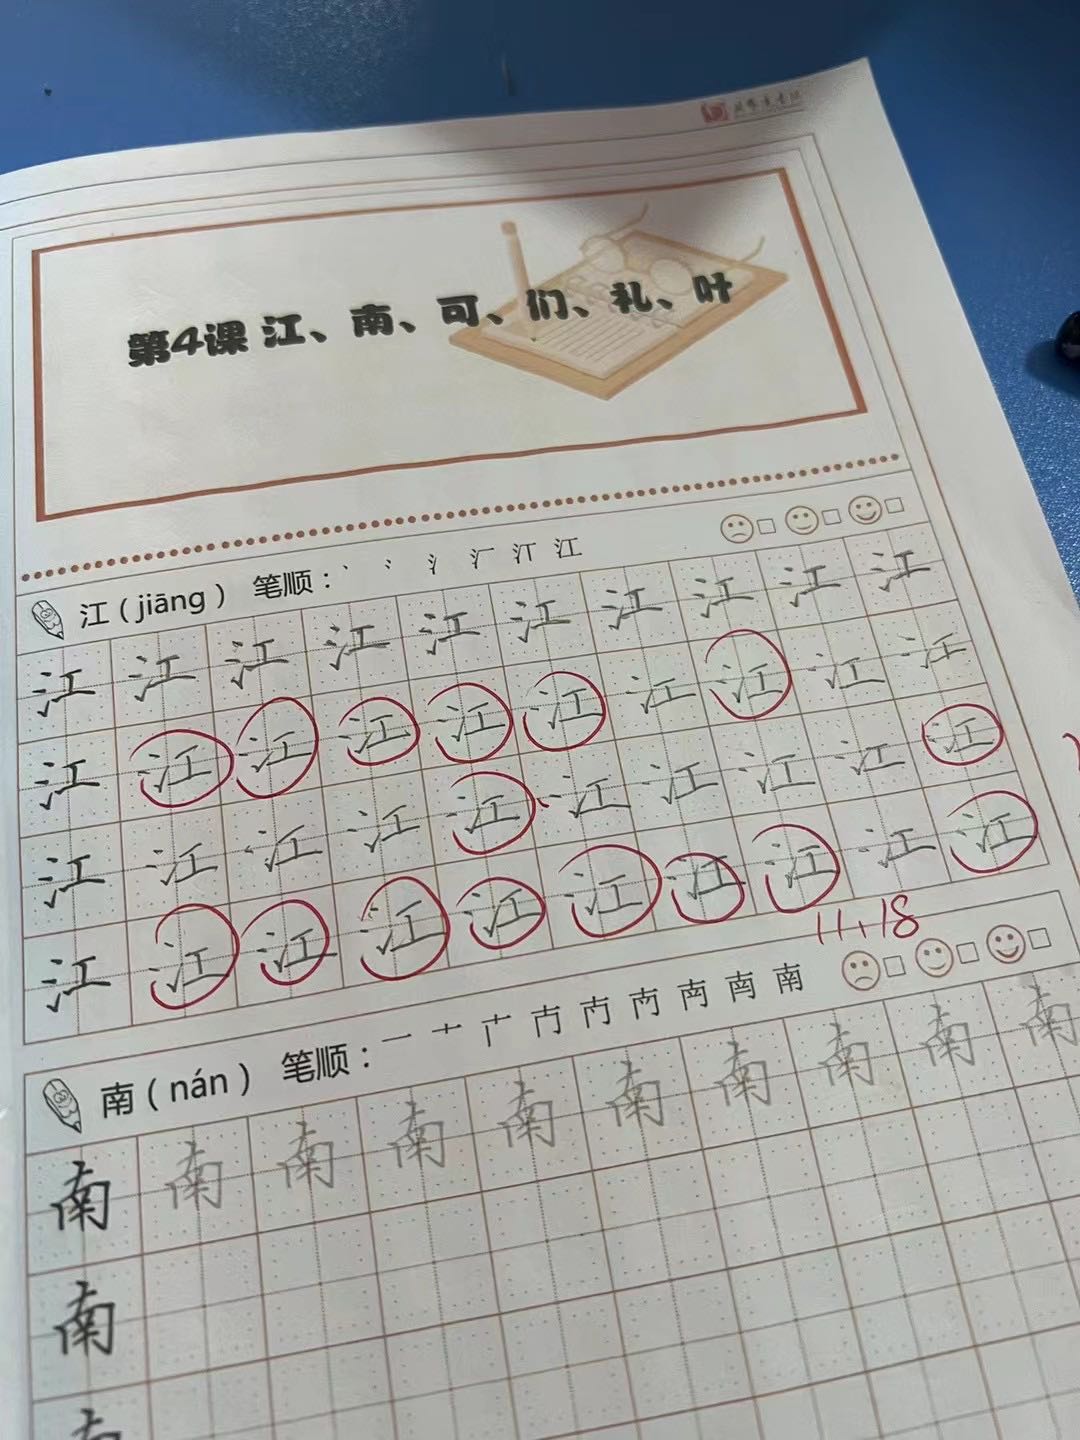 第4课 江、南、可、们、礼、叶
江（jiāng） 笔顺：丶 冫 氵 江
江 江 江 江 江 江 江 江 江 江
江 江 江 江 江 江 江 江 江 江
江 江 江 江 江 江 江 江 江 江
江 江 江 江 江 江 江 江 江 江
11.18
南（nán） 笔顺：一 十 南
南 南 南 南 南 南 南 南 南 南
南